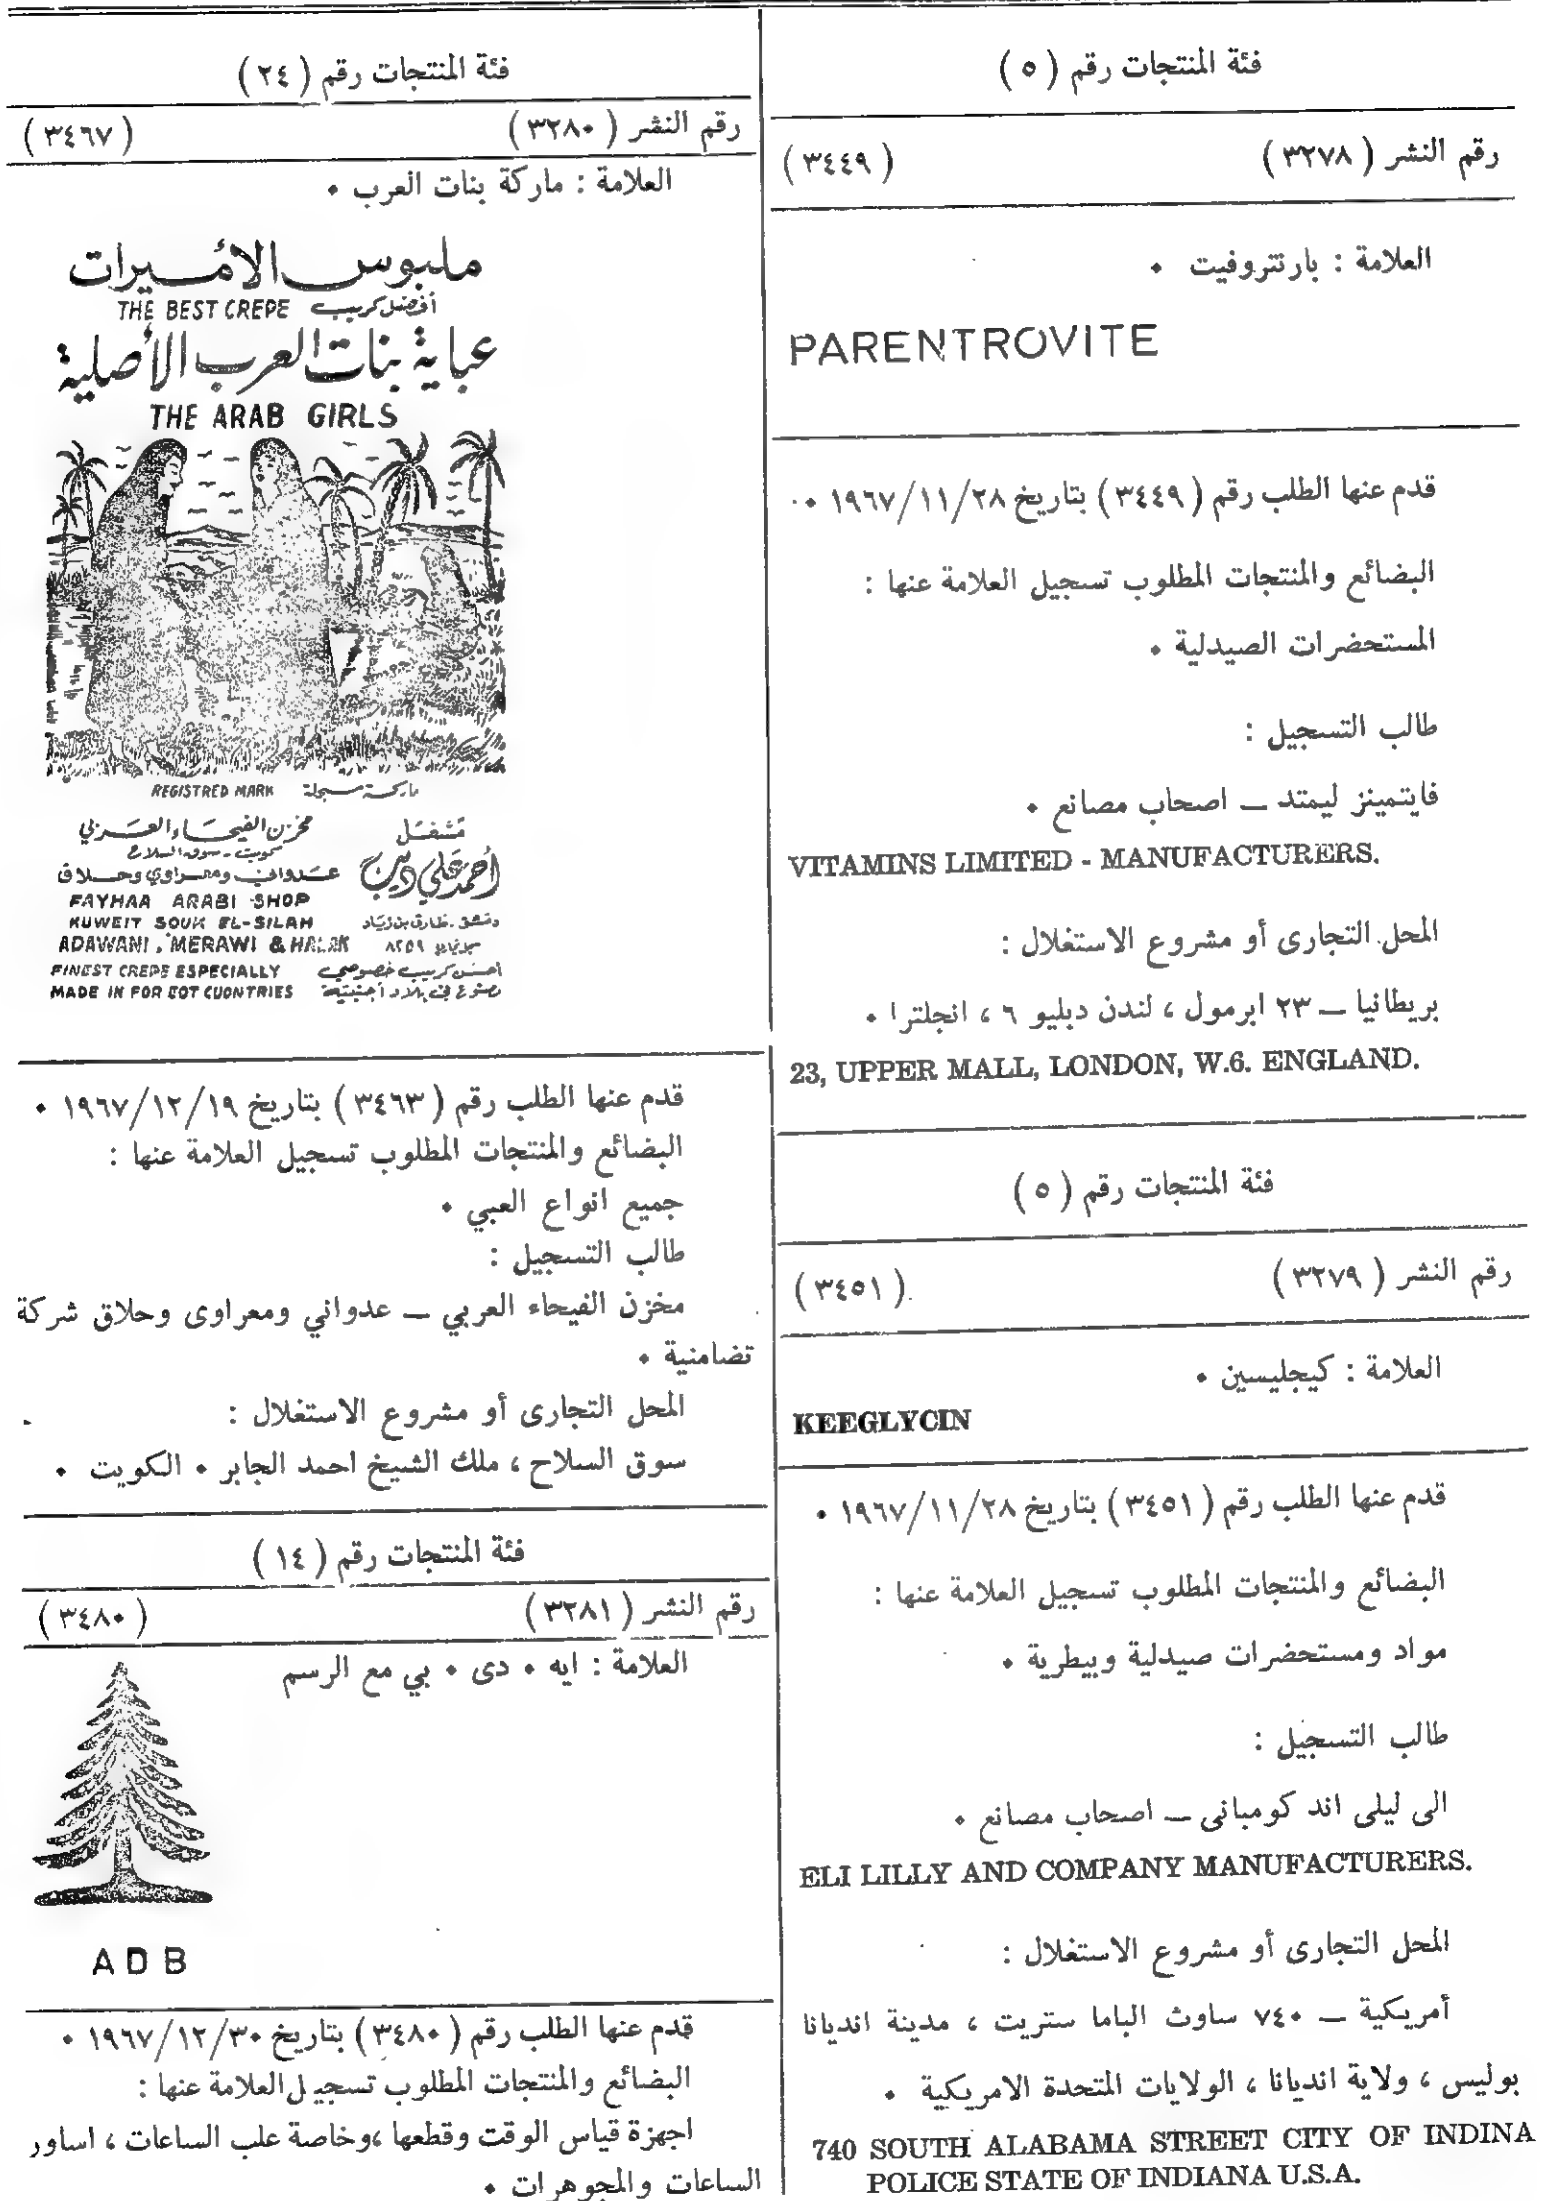 فئة المنتجات رقم ( ٥ )
رقم النشر ( ٣٢٧٨ ) ( ٣٤٤٩ )
العلامة : بارنتروفيت ٠
PARENTROVITE
قدم عنها الطلب رقم ( ٣٤٤٩ ) بتاريخ ١٩٦٧/١١/٢٨ ٠
البضائع والمنتجات المطلوب تسجيل العلامة عنها :
المستحضرات الصيدلية ٠
طالب التسجيل :
فايتمينز ليمتد ـ اصحاب مصانع ٠
VITAMINS LIMITED - MANUFACTURERS.
المحل التجارى أو مشروع الاستغلال :
بريطانيا ـ ٢٣ ابرمول ، لندن دبليو ٦ ، انجلترا ٠
23, UPPER MALL, LONDON, W.6. ENGLAND.
فئة المنتجات رقم ( ٥ )
رقم النشر ( ٣٢٧٩ ) ( ٣٤٥١ )
العلامة : كيجليسين ٠
KEEGLYCIN
قدم عنها الطلب رقم ( ٣٤٥١ ) بتاريخ ١٩٦٧/١١/٢٨ ٠
البضائع والمنتجات المطلوب تسجيل العلامة عنها :
مواد ومستحضرات صيدلية وبيطرية ٠
طالب التسجيل :
الى ليلى اند كومبانى ـ اصحاب مصانع ٠
ELI LILLY AND COMPANY MANUFACTURERS.
المحل التجارى أو مشروع الاستغلال :
أمريكية ـ ٧٤٠ ساوث الباما ستريت ، مدينة انديانا
بوليس ، ولاية انديانا ، الولايات المتحدة الامريكية ٠
740 SOUTH ALABAMA STREET CITY OF INDINA
POLICE STATE OF INDIANA U.S.A.
فئة المنتجات رقم ( ٢٤ )
رقم النشر ( ٣٢٨٠ ) ( ٣٤٦٧ )
العلامة : ماركة بنات العرب ٠
ملبوس الأميرات
THE BEST CREPE أفضل كريب
عباية بنات العرب الأصلية
THE ARAB GIRLS
REGISTRED MARK ماركة مسجلة
مشغل
أحمد علي دبس
دمشق . طارق بن زياد
٨٢٥٩
مخزن الفيحاء العربي
كويت - سوق السلاح
عدواني ومعراوي وحلاق
FAYHAA ARABI SHOP
KUWEIT SOUK EL-SILAH
ADAWANI , MERAWI & HALAK
FINEST CREPE ESPECIALLY أحسن كريب خصوصي
MADE IN FOR EOT CUONTRIES مصنوع في بلاد أجنبية
قدم عنها الطلب رقم ( ٣٤٦٣ ) بتاريخ ١٩٦٧/١٢/١٩ ٠
البضائع والمنتجات المطلوب تسجيل العلامة عنها :
جميع انواع العبي ٠
طالب التسجيل :
مخزن الفيحاء العربي ـ عدواني ومعراوى وحلاق شركة
تضامنية ٠
المحل التجارى أو مشروع الاستغلال :
سوق السلاح ، ملك الشيخ احمد الجابر ٠ الكويت ٠
فئة المنتجات رقم ( ١٤ )
رقم النشر ( ٣٢٨١ ) ( ٣٤٨٠ )
العلامة : ايه ٠ دى ٠ بي مع الرسم
A D B
قدم عنها الطلب رقم ( ٣٤٨٠ ) بتاريخ ١٩٦٧/١٢/٣٠ ٠
البضائع والمنتجات المطلوب تسجيل العلامة عنها :
اجهزة قياس الوقت وقطعها ،وخاصة علب الساعات ، اساور
الساعات والمجوهرات ٠